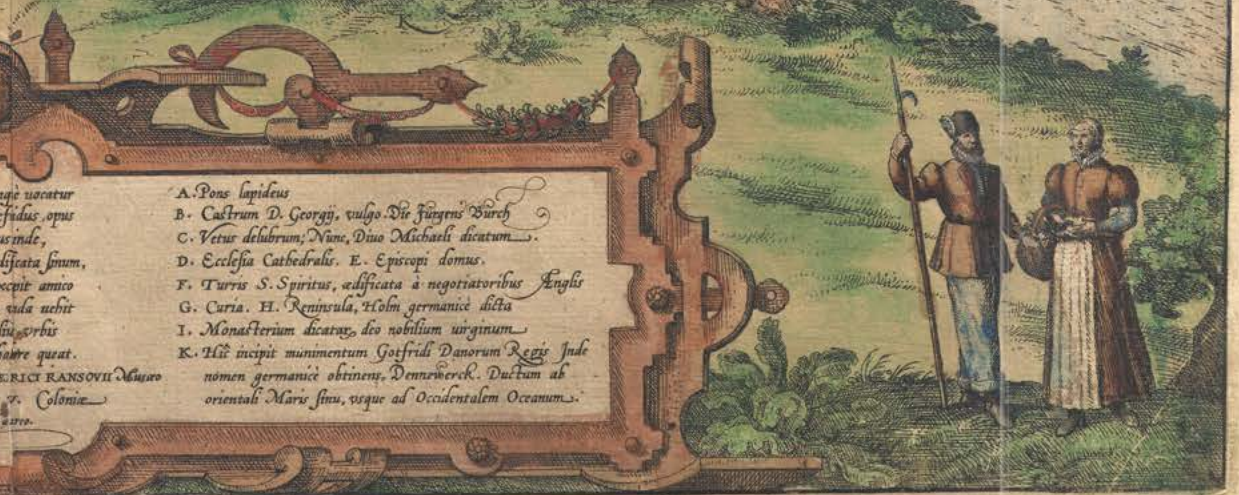 K
uocatur
opus
inde,
sinum,
amico
uehit
vrbis
queat.
RANSOVII Musæo
Coloniæ
A. Pons lapideus
B. Castrum D. Georgij, vulgo. Die Jürgens Bürch
C. Vetus delubrum; Nunc, Diuo Michaeli dicatum.
D. Ecclesia Cathedralis. E. Episcopi domus.
F. Turris S. Spiritus, ædificata à negotiatoribus Ænglis
G. Curia. H. Reninsula, Holm germanicè dicta
I. Monasterium dicatar, deo nobilium uirginum
K. Hic incipit munimentum Gotfridi Danorum Regis Inde
nomen germanicè obtinens, Dennewerck. Ductum ab
orientali Maris sinu, vsque ad Occidentalem Oceanum.